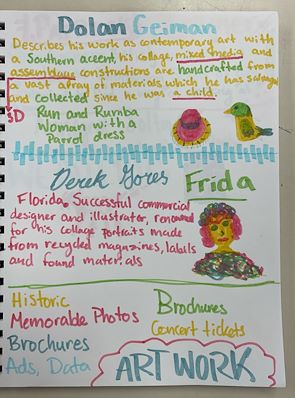 Dolan Geiman
Describes his work as contemporary art with
a Southern accent, his collage, mixed media and
assemblage constructions are handcrafted from
a vast array of materials, which he has salvaged
and collected since he was a child.
3D Run and Rumba
Woman with a
Parrot dress
Derek Gores Frida
Florida. Successful commercial
designer and illustrator, renowned
for his collage portraits made
from recycled magazines, labels
and found materials
Historic
Memorable Photos
Brochures
Ads, Data
Brochures
Concert tickets
ART WORK